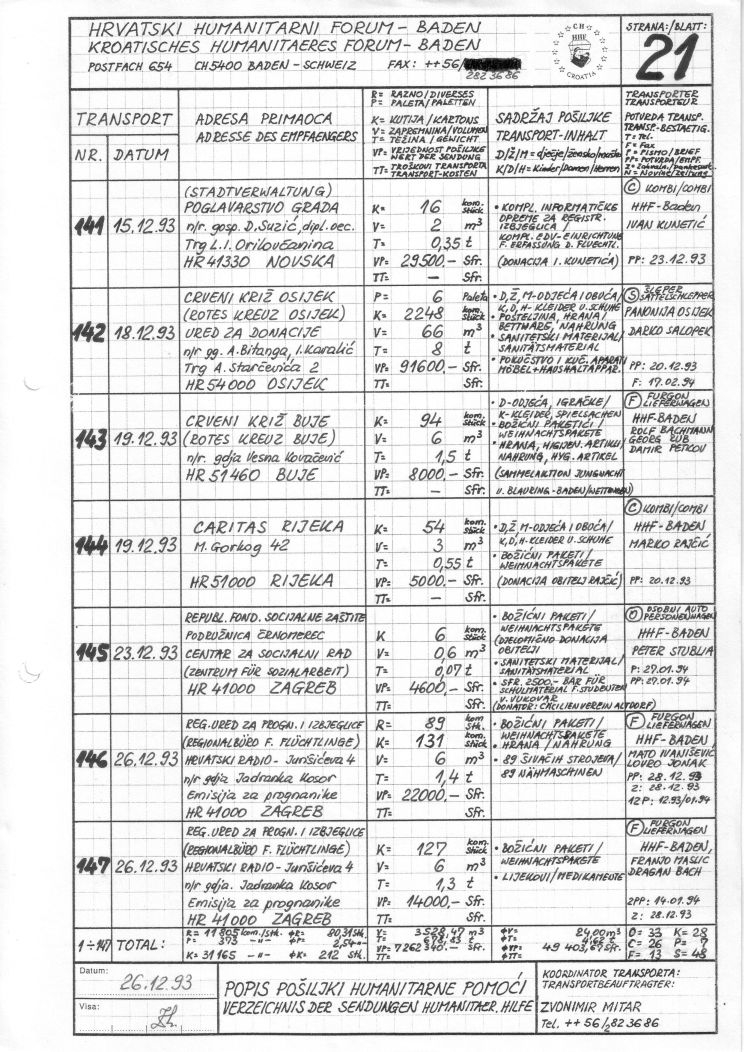 HRVATSKI HUMANITARNI FORUM – BADEN
KROATISCHES HUMANITAERES FORUM – BADEN
POSTFACH 654 CH 5400 BADEN – SCHWEIZ FAX: ++ 56/
282 36 86
CH
HHF
CROATIA
STRANA:/BLATT:
21
TRANSPORT
NR. DATUM
ADRESA PRIMAOCA
ADRESSE DES EMPFAENGERS
R = RAZNO/DIVERSES
P = PALETA/PALETTEN
K = KUTIJA/KARTONS
V = ZAPREMNINA/VOLUMEN
T = TEŽINA/GEWICHT
VP = VRIJEDNOST POŠILJKE
WERT DER SENDUNG
TT = TROŠKOVI TRANSPORTA
TRANSPORT-KOSTEN
SADRŽAJ POŠILJKE
TRANSPORT-INHALT
D/Ž/M = dječje/žensko/muško
K/D/H = Kinder/Damen/Herren
TRANSPORTER
TRANSPORTEUR
POTVRDA TRANSP.
TRANSP.-BESTAETIG.
T = Tel.
F = Fax
P = PISMO/BRIEF
PP = POTVRDA/EMPF.
N = Novine/Zeitung
141 15.12.93
(STADTVERWALTUNG)
POGLAVARSTVO GRADA
n/r. gosp. D. Suzić, dipl. oec.
Trg L. I. Oriovčanina
HR 41330 NOVSKA
K = 16 kom. Stück
V = 2 m³
T = 0,35 t
VP = 29500.– Sfr.
TT = – Sfr.
• KOMPL. INFORMATIČKE
OPREME ZA REGISTR.
IZBJEGLICA /
KOMPL. EDV-EINRICHTUNG
F. ERFASSUNG D. FLUECHTL.
(DONACIJA I. KUNETIĆA)
C KOMBI/COMBI
HHF-Baden
IVAN KUNETIĆ
PP: 23.12.93
142 18.12.93
CRVENI KRIŽ OSIJEK
(ROTES KREUZ OSIJEK)
URED ZA DONACIJE
n/r gg. A. Bitanga, I. Karalić
Trg A. Starčevića 2
HR 54000 OSIJEK
P = 6 Paleta
K = 2248 kom. Stück
V = 66 m³
T = 8 t
VP = 91600.– Sfr.
TT = Sfr.
• D,Ž,M-ODJEĆA I OBUĆA/
K,D,H-KLEIDER U. SCHUHE
• POSTELJINA, HRANA/
BETTWARE, NAHRUNG
• SANITETSKI MATERIJAL/
SANITÄTSMATERIAL
• POKUĆSTVO I KUĆ. APARATI
MÖBEL + HAUSHALTAPPAR.
S ŠLEPER
SATTELSCHLEPPER
PANONIJA OSIJEK
DARKO SALOPEK
PP: 20.12.93
F: 17.02.94
143 19.12.93
CRVENI KRIŽ BUJE
(ROTES KREUZ BUJE)
n/r. gdja Vesna Kovačević
HR 51460 BUJE
K = 94 kom. Stück
V = 6 m³
T = 1,5 t
VP = 8000.– Sfr.
TT = – Sfr.
• D-ODJEĆA, IGRAČKE/
K-KLEIDER, SPIELSACHEN
• BOŽIĆNI PAKETIĆI/
WEIHNACHTSPAKETE
• HRANA, HIGIJEN. ARTIKLI/
NAHRUNG, HYG. ARTIKEL
(SAMMELAKTION JUNGWACHT
U. BLAURING-BADEN/WETTINGEN)
F FURGON
LIEFERWAGEN
HHF-BADEN
ROLF BACHMANN
GEORG RÜB
DAMIR PETKOV
144 19.12.93
CARITAS RIJEKA
M. Gorkog 42
HR 51000 RIJEKA
K = 54 kom. Stück
V = 3 m³
T = 0,55 t
VP = 5000.– Sfr.
TT = – Sfr.
• D,Ž,M-ODJEĆA I OBUĆA/
K,D,H-KLEIDER U. SCHUHE
• BOŽIĆNI PAKETI/
WEIHNACHTSPAKETE
(DONACIJA OBITELJ RAJČIĆ)
C KOMBI/COMBI
HHF-BADEN
MARKO RAJČIĆ
PP: 20.12.93
145 23.12.93
REPUBL. FOND. SOCIJALNE ZAŠTITE
PODRUŽNICA ČRNOMEREC
CENTAR ZA SOCIJALNI RAD
(ZENTRUM FÜR SOZIALARBEIT)
HR 41000 ZAGREB
K 6 kom. Stück
V = 0,6 m³
T = 0,07 t
VP = 4600.– Sfr.
TT = Sfr.
• BOŽIĆNI PAKETI/
WEIHNACHTSPAKETE
(DJELOMIČNO DONACIJA
OBITELJI
• SANITETSKI MATERIJAL/
SANITÄTSMATERIAL
• SFR. 2500.– BAR FÜR
SCHULMATERIAL F. STUDENTEN
V. VUKOVAR
(DONATOR: CÄCILIENVEREIN ALTDORF)
O OSOBNI AUTO
PERSONENWAGEN
HHF-BADEN
PETER STUBLIA
P: 27.01.94
PP: 27.01.94
146 26.12.93
REG. URED ZA PROGN. I IZBJEGLICE
(REGIONALBÜRO F. FLÜCHTLINGE)
HRVATSKI RADIO - Jurišićeva 4
n/r gdja Jadranka Kosor
Emisija za prognanike
HR 41000 ZAGREB
R = 89 kom. Stk.
K = 131 kom. Stück
V = 6 m³
T = 1,4 t
VP = 22000.– Sfr.
TT = Sfr.
• BOŽIĆNI PAKETI/
WEIHNACHTSPAKETE
• HRANA / NAHRUNG
• 89 ŠIVAĆIH STROJEVA/
89 NÄHMASCHINEN
F FURGON
LIEFERWAGEN
HHF-BADEN
MATO IVANIŠEVIĆ
LOVRO JONAK
PP: 28.12.93
Z: 28.12.93
12P: 12.93/01.94
147 26.12.93
REG. URED ZA PROGN. I IZBJEGLICE
(REGIONALBÜRO F. FLÜCHTLINGE)
HRVATSKI RADIO - Jurišićeva 4
n/r gdja. Jadranka Kosor
Emisija za prognanike
HR 41000 ZAGREB
K = 127 kom. Stück
V = 6 m³
T = 1,3 t
VP = 14000.– Sfr.
TT = Sfr.
• BOŽIĆNI PAKETI/
WEIHNACHTSPAKETE
• LIJEKOVI/MEDIKAMENTE
F FURGON
LIEFERWAGEN
HHF-BADEN,
FRANJO MASLIC
DRAGAN BACH
2PP: 14.01.94
Z: 28.12.93
1÷147 TOTAL:
R = 11805 kom./Stk. ØR = 80,31 Stk.
P = 373 –"– ØP = 2,54 –"–
K = 31165 –"– ØK = 212 Stk.
V = 3528,47 m³
T = 678,63 t
VP = 7262340.– Sfr.
TT =
ØV = 24,00 m³
ØT = 4,62 t
ØVP = 49 403,67 Sfr.
ØTT =
O = 33 K = 28
C = 26 P = 7
F = 13 S = 48
Datum: 26.12.93
Visa:
POPIS POŠILJKI HUMANITARNE POMOĆI
VERZEICHNIS DER SENDUNGEN HUMANITAER. HILFE
KOORDINATOR TRANSPORTA:
TRANSPORTBEAUFTRAGTER:
ZVONIMIR MITAR
Tel. ++ 56/282 36 86